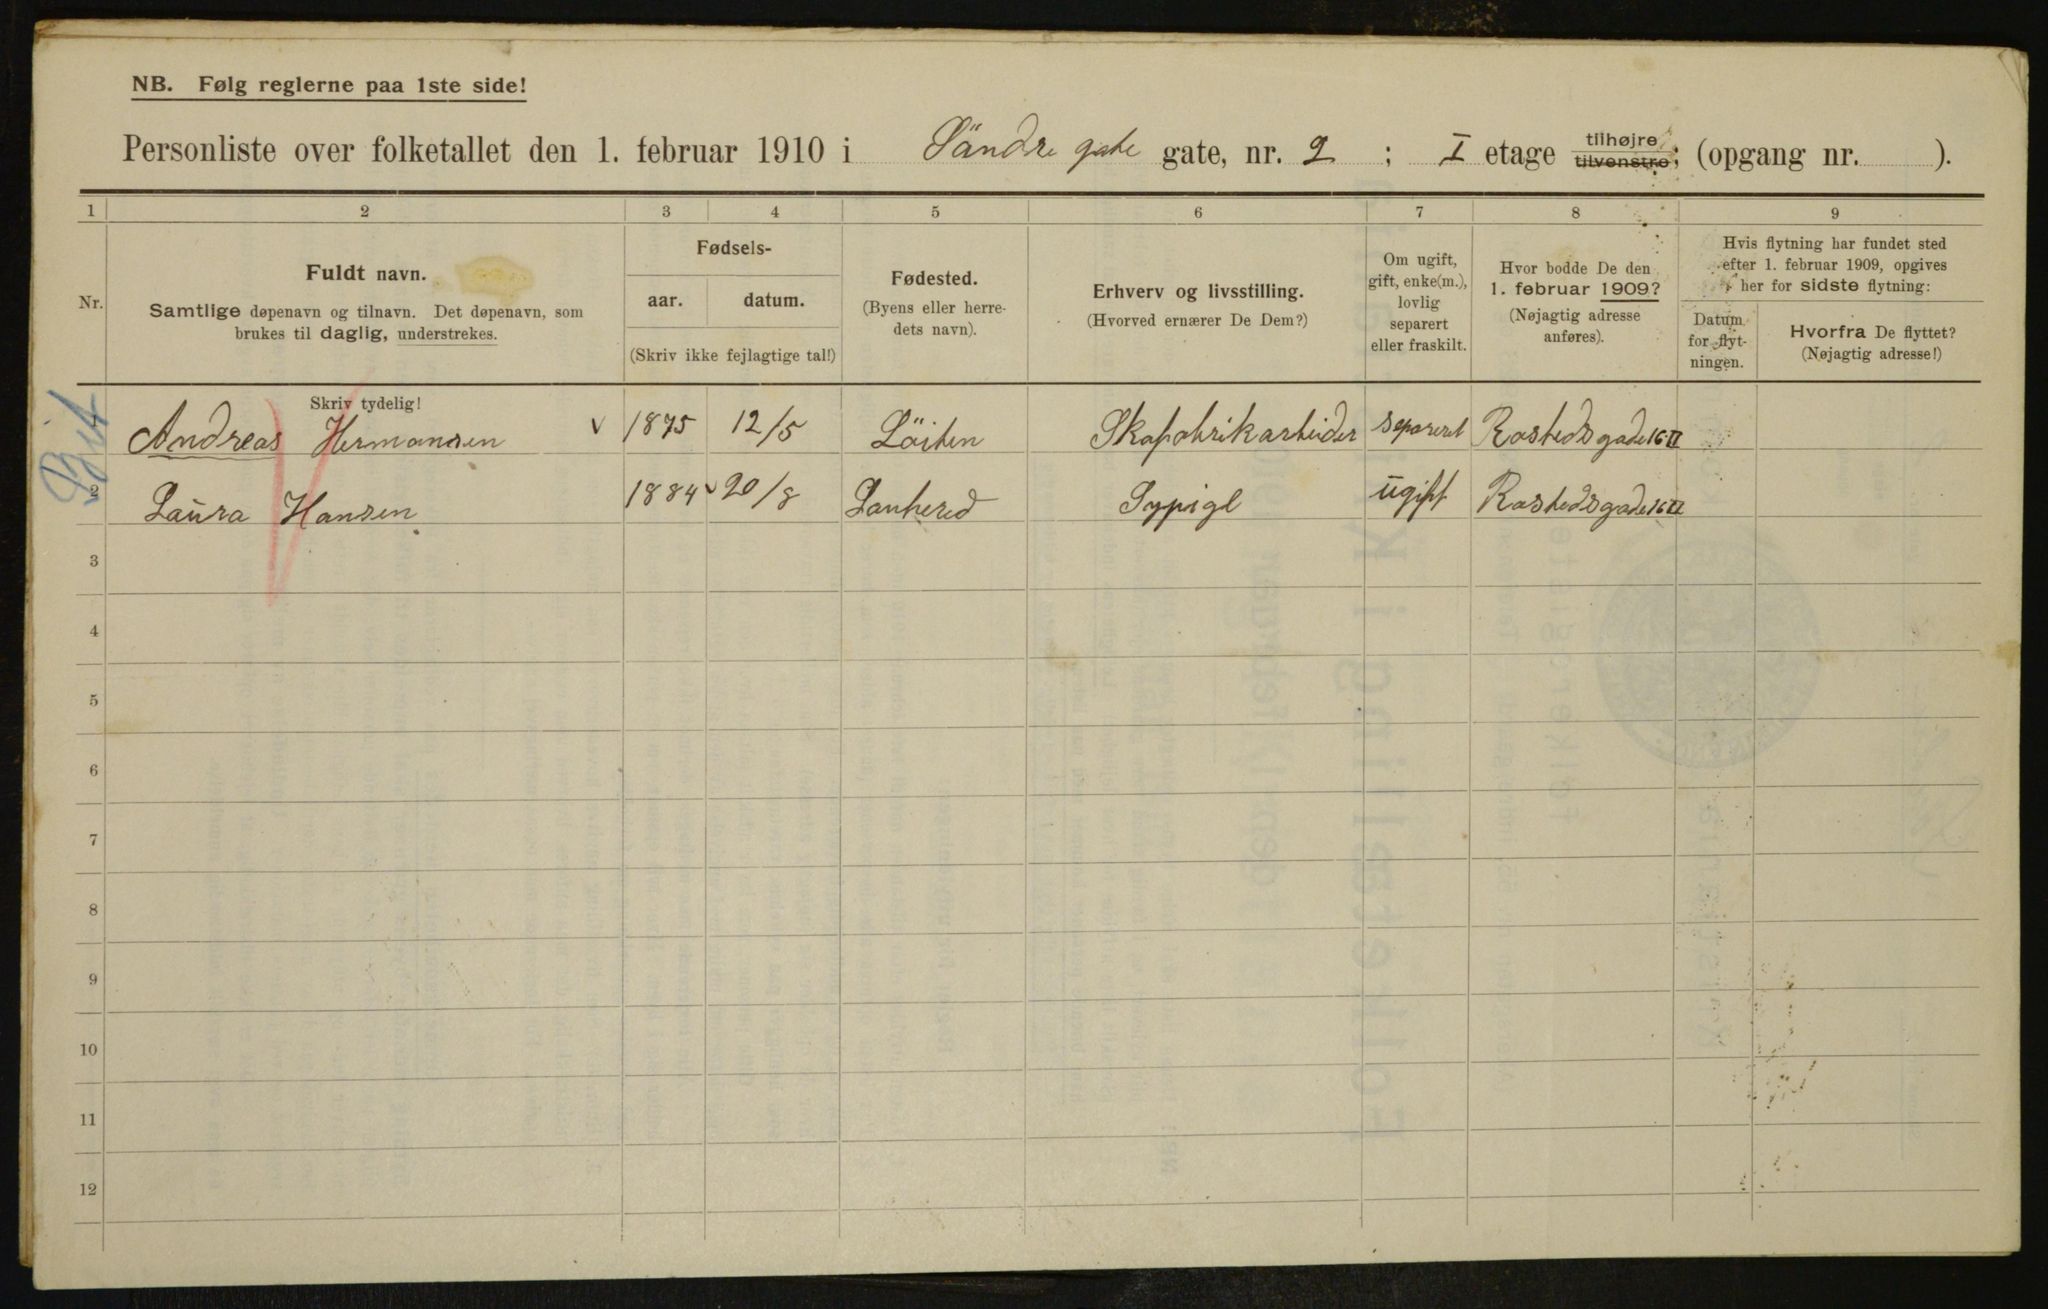 NB. Følg reglerne paa 1ste side!
Personliste over folketallet den 1. februar 1910 i Söndre gate gate, nr. 2 ; I etage tilhøjre tilvenstre; (opgang nr. ).
1 2 3 4 5 6 7 8 9
Nr.
Fuldt navn.
Samtlige døpenavn og tilnavn. Det døpenavn, som
brukes til daglig, understrekes.
Fødsels-
aar. datum.
(Skriv ikke fejlagtige tal!)
Fødested.
(Byens eller herre-
dets navn).
Erhverv og livsstilling.
(Hvorved ernærer De Dem?)
Om ugift,
gift, enke(m.),
lovlig
separert
eller fraskilt.
Hvor bodde De den
1. februar 1909?
(Nøjagtig adresse
anføres).
Hvis flytning har fundet sted
efter 1. februar 1909, opgives
her for sidste flytning:
Datum
for flyt-
ningen.
Hvorfra De flyttet?
(Nøjagtig adresse!)
Skriv tydelig!
1 Andreas Hermansen 1875 12/5 Löiten Skofabrikarbeider separeret Rostedsgade 16 II
2 Laura Hansen 1884 20/8 Sypige ugift Rostedsgade 16 II
3
4
5
6
7
8
9
10
11
12